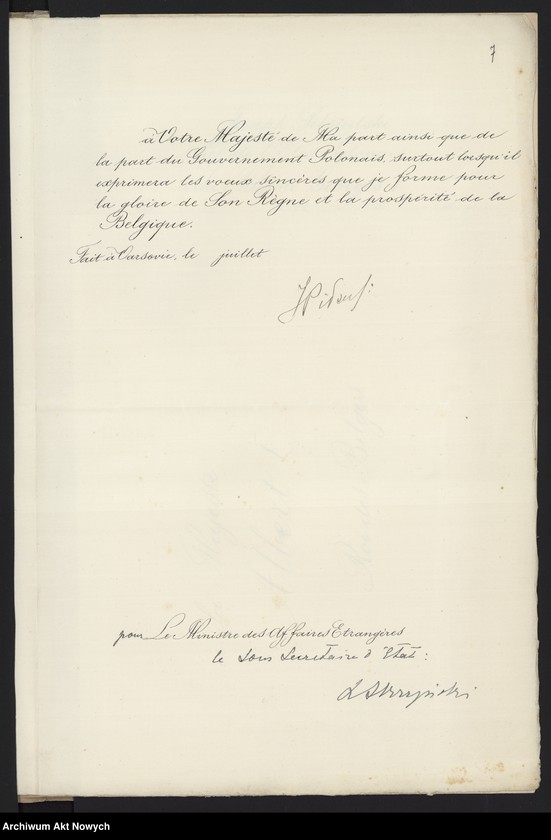 7
à Votre Majesté de Ma part ainsi que de
la part du Gouvernement Polonais, surtout lorsqu'il
exprimera les voeux sincères que je forme pour
la gloire de Son Règne et la prospérité de la
Belgique.
Fait à Varsovie, le juillet
JPiłsud:
pour Le Ministre des Affaires Etrangères
le Sous Secretaire d'Etat:
Skrzyński
Archiwum Akt Nowych